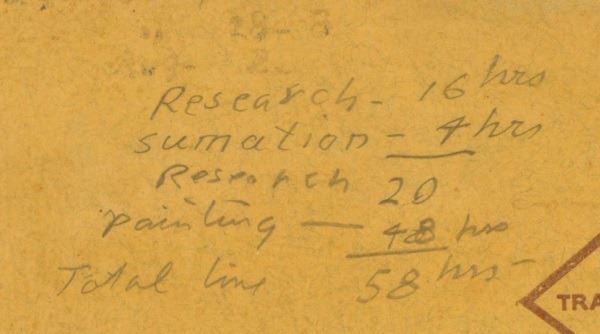 Research - 16 hrs
sumation - 4 hrs
Research 20
painting — 48 hrs
Total time 58 hrs -
TRA